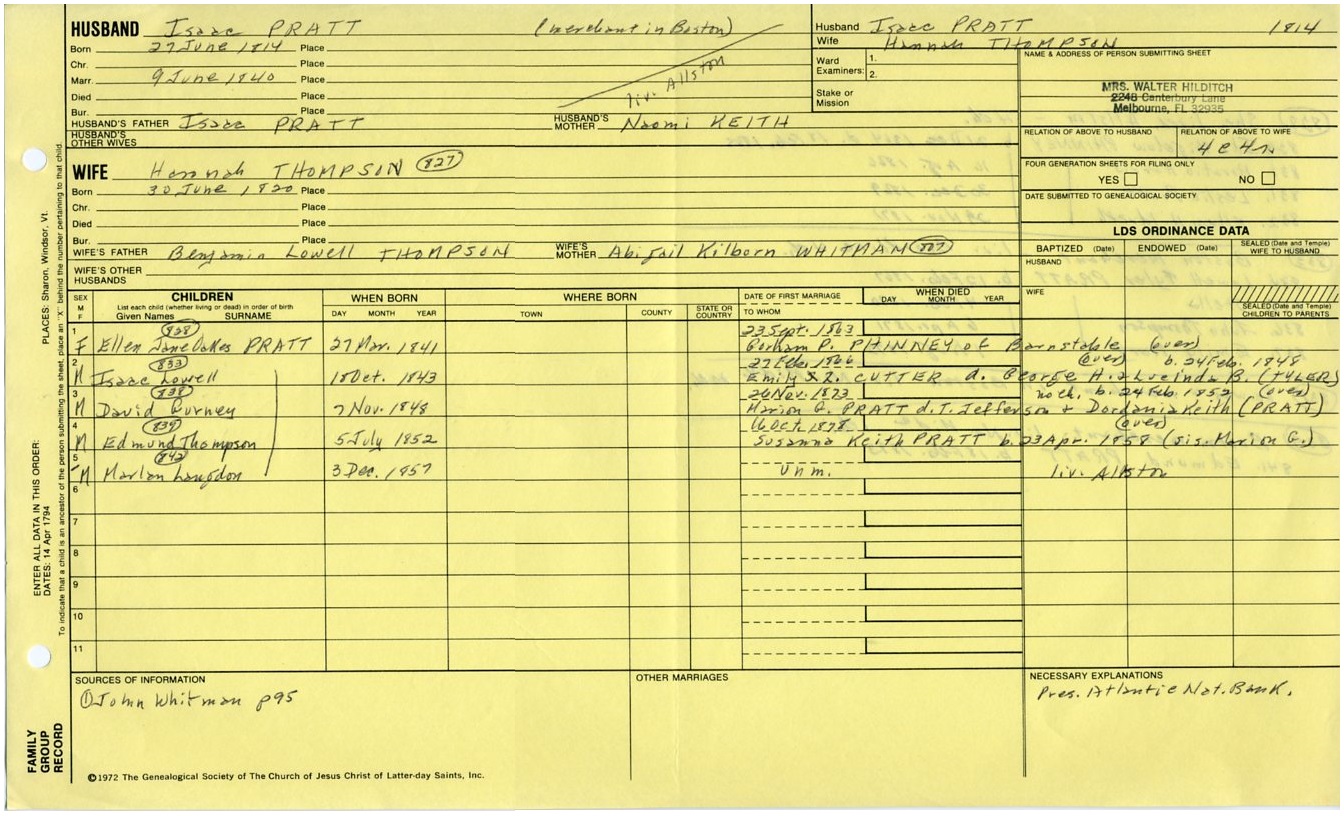 HUSBAND Isaac PRATT (merchant in Boston)
Born 27 June 1814 Place
Chr. Place
Marr. 9 June 1840 Place
liv. Allston
Died Place
Bur. Place
HUSBAND'S FATHER Isaac PRATT HUSBAND'S MOTHER Naomi KEITH
HUSBAND'S OTHER WIVES
Husband Isaac PRATT 1814
Wife Hannah THOMPSON
Ward Examiners: 1.
2.
Stake or Mission
NAME & ADDRESS OF PERSON SUBMITTING SHEET
MRS. WALTER HILDITCH
2248 Canterbury Lane
Melbourne, FL 32935
RELATION OF ABOVE TO HUSBAND RELATION OF ABOVE TO WIFE
4c4r
FOUR GENERATION SHEETS FOR FILING ONLY
YES NO
DATE SUBMITTED TO GENEALOGICAL SOCIETY
WIFE Hannah THOMPSON 827
Born 30 June 1820 Place
Chr. Place
Died Place
Bur. Place
WIFE'S FATHER Benjamin Lowell THOMPSON WIFE'S MOTHER Abigail Kilborn WHITMAN 807
WIFE'S OTHER HUSBANDS
LDS ORDINANCE DATA
BAPTIZED (Date) ENDOWED (Date) SEALED (Date and Temple) WIFE TO HUSBAND
HUSBAND
WIFE
SEALED (Date and Temple) CHILDREN TO PARENTS
SEX M F
CHILDREN
List each child (whether living or dead) in order of birth
Given Names SURNAME
WHEN BORN
DAY MONTH YEAR
WHERE BORN
TOWN COUNTY STATE OR COUNTRY
DATE OF FIRST MARRIAGE
TO WHOM
WHEN DIED
DAY MONTH YEAR
1 828 23 Sept. 1863
F Ellen Jane Oakes PRATT 27 Mar. 1841 Gorham P. PHINNEY of Barnstable (over)
2 833 27 Feb. 1866 (over) b. 24 Feb. 1848
M Isaac Lowell 18 Oct. 1843 Emily L. CUTTER d. George H. & Lucinda B. (TYLER)
3 838 26 Nov. 1873 no ch. b. 24 Feb. 1852 (over)
M David Gurney 7 Nov. 1848 Marion G. PRATT d. T. Jefferson + Dordania Keith (PRATT)
4 839 16 Oct. 1878 (over)
M Edmund Thompson 5 July 1852 Susanna Keith PRATT b. 23 Apr. 1858 (sis. Marion G.)
5 842
M Marlan Langdon 3 Dec. 1857 Unm. liv. Allston
6
7
8
9
10
11
SOURCES OF INFORMATION
① John Whitman p95
OTHER MARRIAGES
NECESSARY EXPLANATIONS
Pres. Atlantic Nat. Bank.
©1972 The Genealogical Society of The Church of Jesus Christ of Latter-day Saints, Inc.
FAMILY GROUP RECORD
ENTER ALL DATA IN THIS ORDER:
DATES: 14 Apr 1794
PLACES: Sharon, Windsor, Vt.
To indicate that a child is an ancestor of the person submitting the sheet, place an "X" behind the number pertaining to that child.